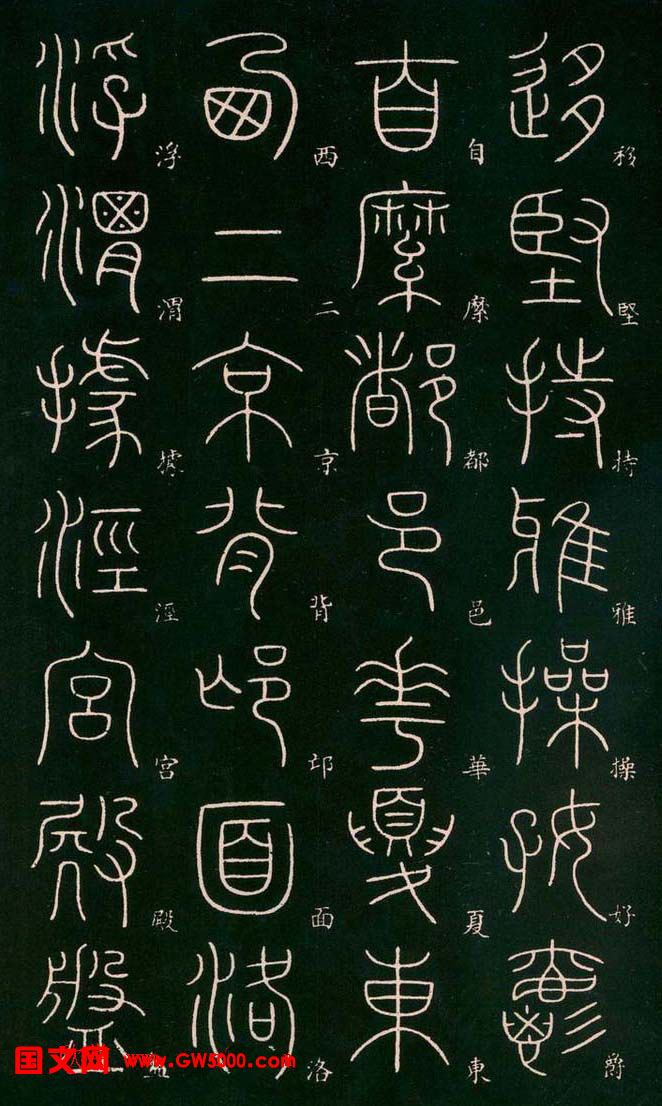 移堅持雅操好爵
自縻都邑華夏東
西二京背邙面洛
浮渭據涇宮殿盤
国文网 www.GW5000.com